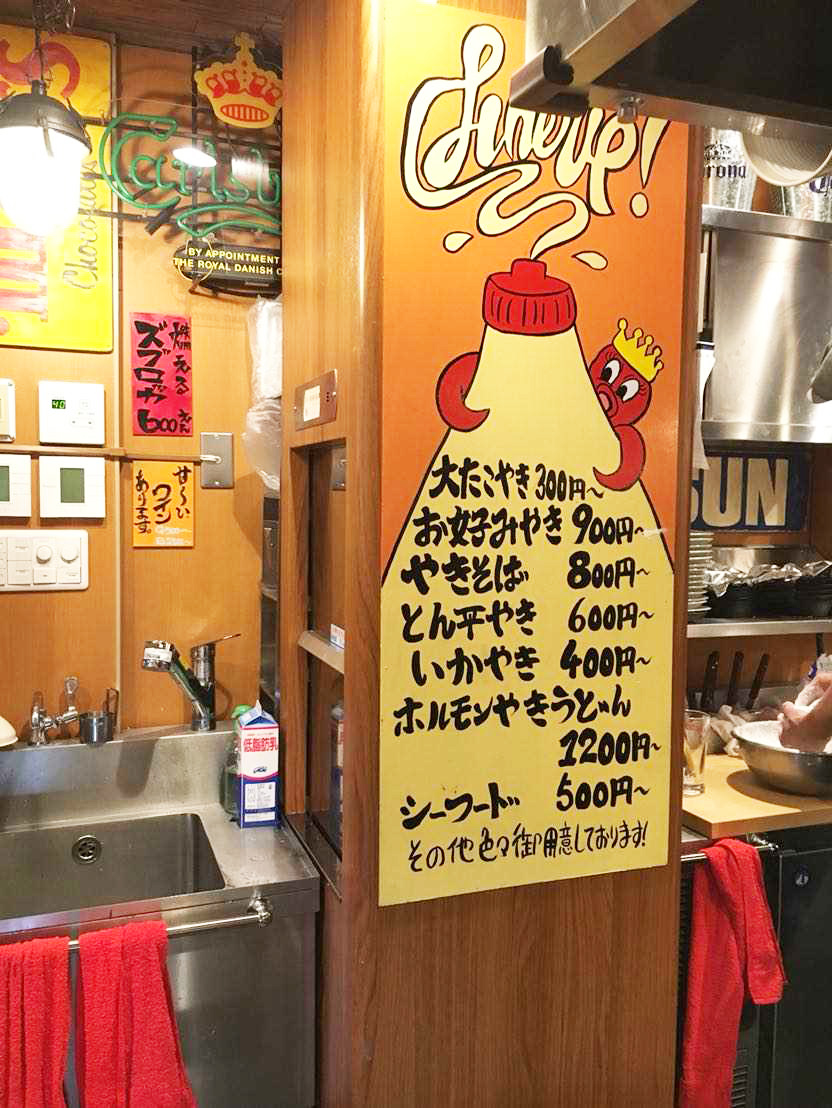 Line up!
大たこやき 300円~
お好みやき 900円~
やきそば 800円~
とん平やき 600円~
いかやき 400円~
ホルモンやきうどん
1200円~
シーフード 500円~
その他色々御用意しております!
Carlsb
BY APPOINTMENT
THE ROYAL DANISH C
燃える
ズブロッカ
600えん
せ〜ひ
ワイン
あります。
40
低脂肪乳
orona
SUN